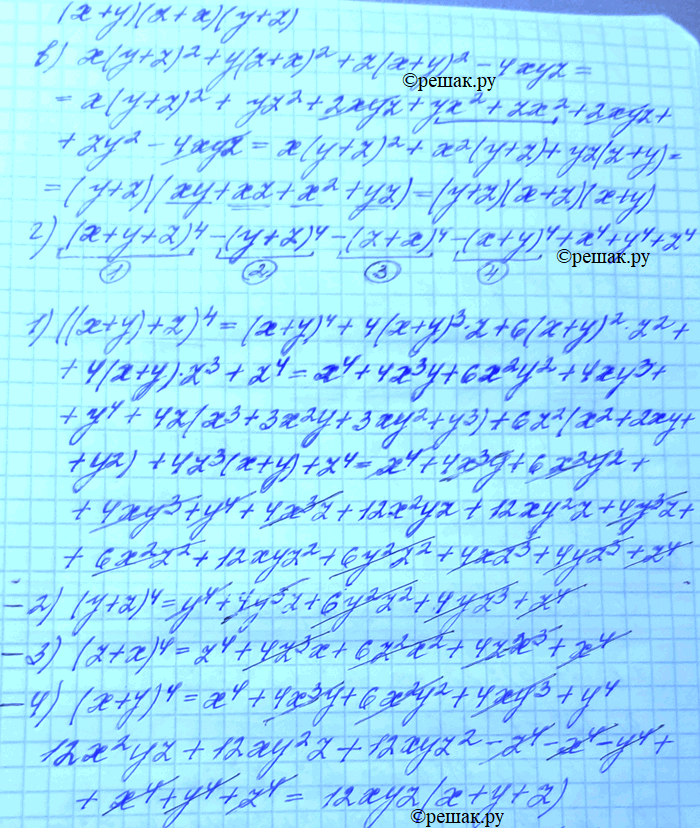 (x+y)(z+x)(y+z)
в) x(y+z)² + y(z+x)² + z(x+y)² - 4xyz =
©решак.ру
= x(y+z)² + yz² + 2xyz + yx² + zx² + 2xyz +
+ zy² - 4xyz = x(y+z)² + x²(y+z) + yz(z+y) =
= (y+z)(xy+xz+x²+yz) = (y+z)(x+z)(x+y)
г) (x+y+z)⁴ - (y+z)⁴ - (z+x)⁴ - (x+y)⁴ + x⁴ + y⁴ + z⁴
① ② ③ ④
©решак.ру
1) ((x+y)+z)⁴ = (x+y)⁴ + 4(x+y)³·z + 6(x+y)²·z² +
+ 4(x+y)·z³ + z⁴ = x⁴ + 4x³y + 6x²y² + 4xy³ +
+ y⁴ + 4z(x³+3x²y+3xy²+y³) + 6z²(x²+2xy+
+ y²) + 4z³(x+y) + z⁴ = x⁴ + 4x³y + 6x²y² +
+ 4xy³ + y⁴ + 4x³z + 12x²yz + 12xy²z + 4y³z +
+ 6x²z² + 12xyz² + 6y²z² + 4xz³ + 4yz³ + z⁴
- 2) (y+z)⁴ = y⁴ + 4y³z + 6y²z² + 4yz³ + z⁴
- 3) (z+x)⁴ = z⁴ + 4z³x + 6z²x² + 4zx³ + x⁴
- 4) (x+y)⁴ = x⁴ + 4x³y + 6x²y² + 4xy³ + y⁴
12x²yz + 12xy²z + 12xyz² - z⁴ - x⁴ - y⁴ +
+ x⁴ + y⁴ + z⁴ = 12xyz(x+y+z)
©решак.ру